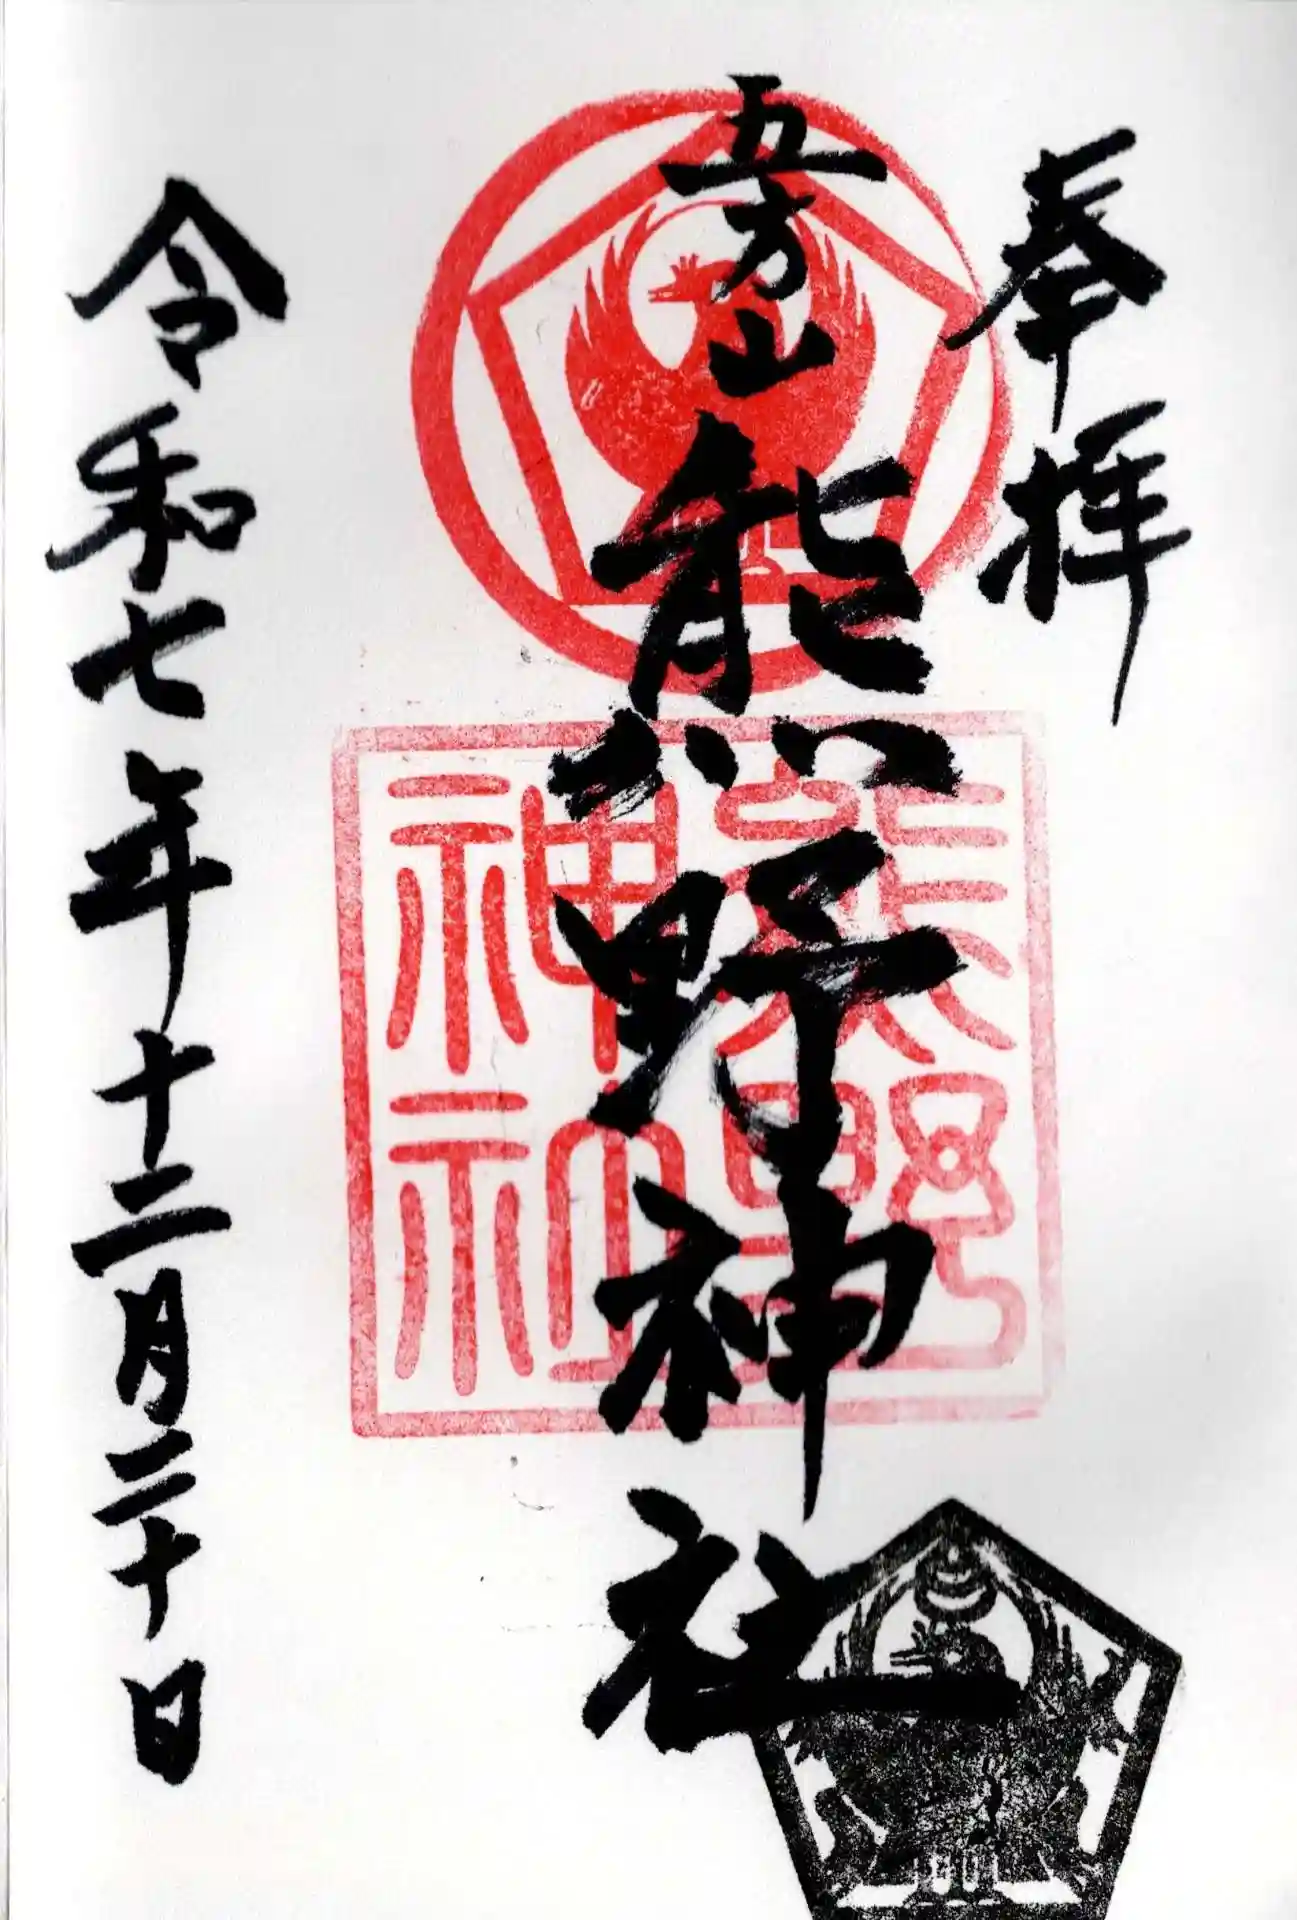 奉拝
五方山熊野神社
熊野
神社
令和七年十二月二十日